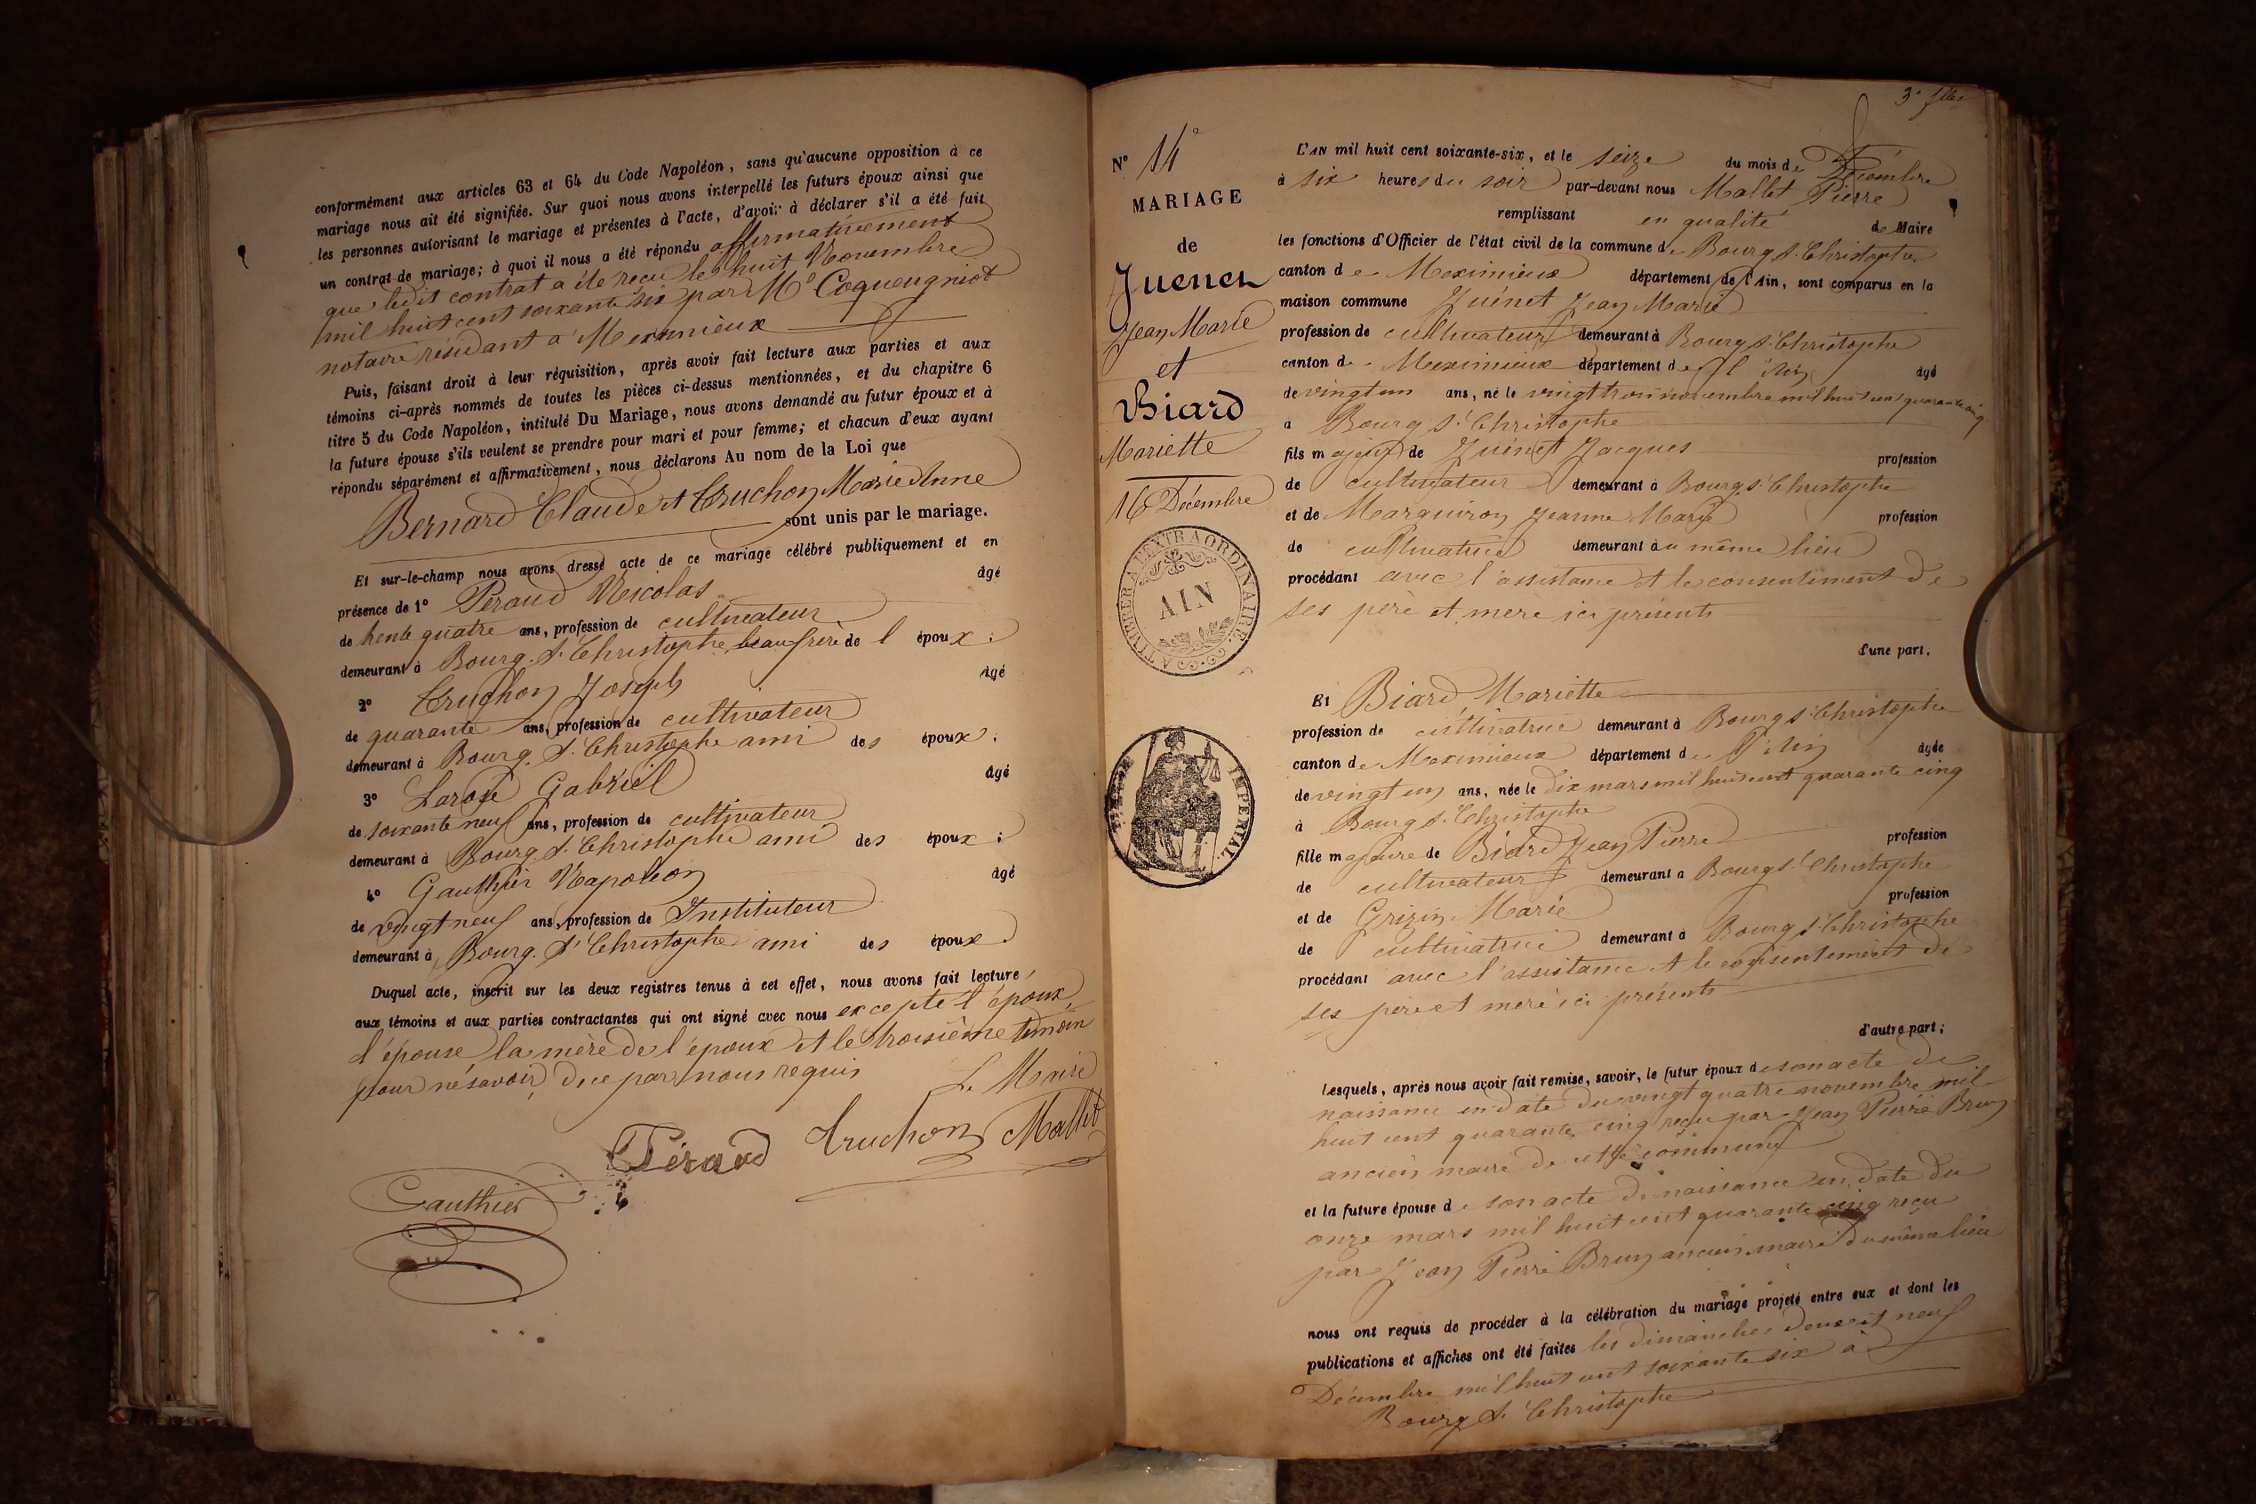 conformément aux articles 63 et 64 du Code Napoléon, sans qu'aucune opposition à ce
mariage nous ait été signifiée. Sur quoi nous avons interpellé les futurs époux ainsi que
les personnes autorisant le mariage et présentes à l'acte, d'avoir à déclarer s'il a été fait
un contrat de mariage; à quoi il nous a été répondu affirmativement
que ledit contrat a été reçu le huit Novembre
mil huit cent soixante six par Me Coqueugniot
notaire résidant a Meximieux
Puis, faisant droit à leur réquisition, après avoir fait lecture aux parties et aux
témoins ci-après nommés de toutes les pièces ci-dessus mentionnées, et du chapitre 6
titre 5 du Code Napoléon, intitulé Du Mariage, nous avons demandé au futur époux et à
la future épouse s'ils veulent se prendre pour mari et pour femme; et chacun d'eux ayant
répondu séparément et affirmativement, nous déclarons Au nom de la Loi que
Bernard Claude et Truchon Marie Anne
sont unis par le mariage.
Et sur-le-champ nous avons dressé acte de ce mariage célébré publiquement et en
présence de 1° Péraud Nicolas âgé
de trente quatre ans, profession de cultivateur
demeurant à Bourg St Christophe, beaufrère de l époux;
2° Truchon Joseph âgé
de quarante ans, profession de cultivateur
demeurant à Bourg St Christophe ami des époux;
3° Larose Gabriel âgé
de soixante neuf ans, profession de cultivateur
demeurant à Bourg St Christophe ami des époux;
4° Gauthier Napoléon âgé
de vingt neuf ans, profession de Instituteur
demeurant à Bourg St Christophe ami des époux.
Duquel acte, inscrit sur les deux registres tenus à cet effet, nous avons fait lecture
aux témoins et aux parties contractantes qui ont signé avec nous excepté l'époux,
l'épouse la mère de l'époux et le troisième témoin
pour ne savoir, de ce par nous requis
Le Maire
Péraud Truchon Mallet
Gauthier
N° 14
MARIAGE
de
Juenet
Jean Marie
et
Biard
Mariette
16 Décembre
A TIMBRER A L'EXTRAORDINAIRE
AIN
IMPERIAL
L'AN mil huit cent soixante-six, et le seize du mois de Décembre
à six heures du soir par-devant nous Mallet Pierre
remplissant en qualité de Maire
les fonctions d'Officier de l'état civil de la commune de Bourg St Christophe
canton de Meximieux département de l'Ain, sont comparus en la
maison commune Juénet Jean Marie
profession de cultivateur demeurant à Bourg St Christophe
canton de Meximieux département de l'Ain âgé
de vingt un ans, né le vingt trois novembre mil huit cent quarante cinq
a Bourg St Christophe
fils majeur de Juénet Jacques profession
de cultivateur demeurant à Bourg St Christophe
et de Marguiron Jeanne Marie profession
de cultivatrice demeurant au même lieu
procédant avec l'assistance et le consentement de
ses père et mère ici présents
d'une part,
Et Biard Mariette
profession de cultivatrice demeurant à Bourg St Christophe
canton de Meximieux département de l'Ain âgée
de vingt un ans, née le dix mars mil huit cent quarante cinq
à Bourg St Christophe
fille majeure de Biard Jean Pierre profession
de cultivateur demeurant a Bourg St Christophe
et de Grizin Marie profession
de cultivatrice demeurant à Bourg St Christophe
procédant avec l'assistance et le consentement de
ses père et mère ici présents
d'autre part;
Lesquels, après nous avoir fait remise, savoir, le futur époux de son acte de
naissance en date du vingt quatre novembre mil
huit cent quarante cinq reçu par Jean Pierre Brun
ancien maire de cette commune
et la future épouse de son acte de naissance en date du
onze mars mil huit cent quarante cinq reçu
par Jean Pierre Brun ancien maire du même lieu
nous ont requis de procéder à la célébration du mariage projeté entre eux et dont les
publications et affiches ont été faites les dimanches deux et neuf
Décembre mil huit cent soixante six à
Bourg St Christophe